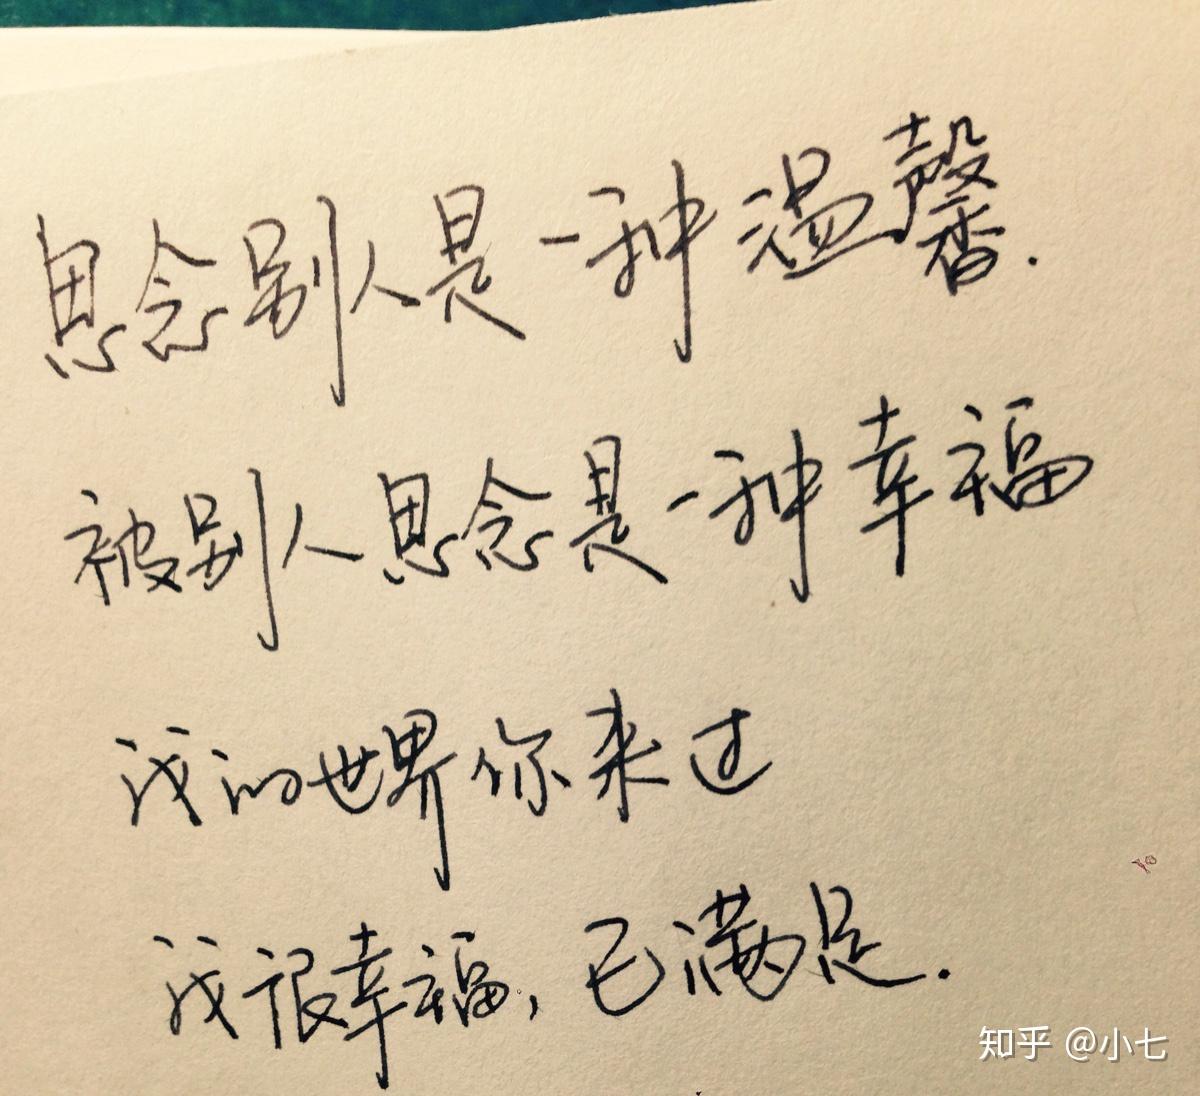 思念别人是一种温馨.
被别人思念是一种幸福
我的世界你来过
我很幸福,已满足.
知乎 @小七